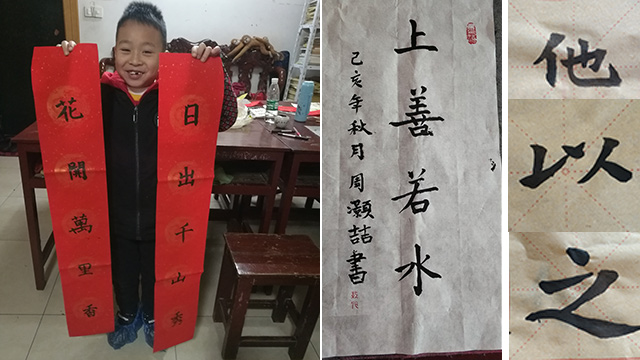 日出千山秀
花開萬里香
上善若水
己亥年秋月周灝喆書
他
以
之